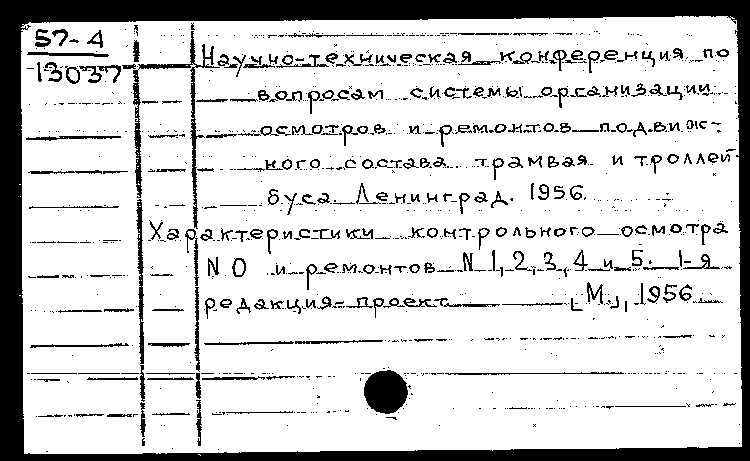 57-4
13037
Научно-техническая конференция по
вопросам системы организации
осмотров и ремонтов подвиж-
ного состава трамвая и троллей-
буса. Ленинград. 1956.
Характеристики контрольного осмотра
N О и ремонтов N 1, 2, 3, 4 и 5. 1-я
редакция-проект. [М.], 1956.